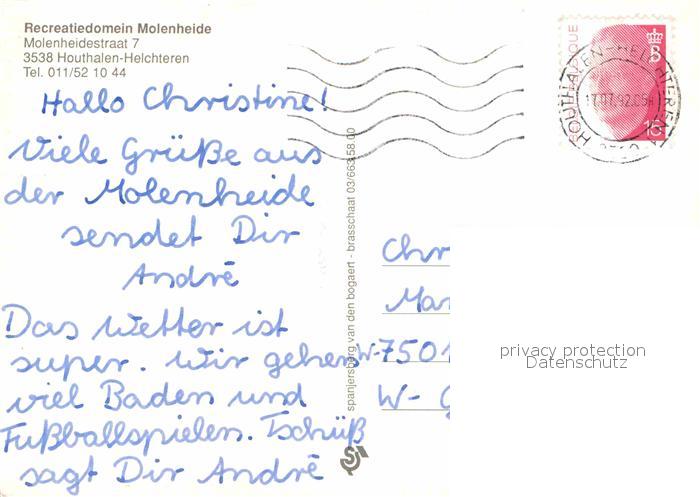 Recreatiedomein Molenheide
Molenheidestraat 7
3538 Houthalen-Helchteren
Tel. 011/52 10 44
Hallo Christine!
Viele Grüße aus
der Molenheide
sendet Dir
André
Das Wetter ist
super. Wir gehen
viel Baden und
Fußballspielen. Tschüß
sagt Dir André
spanjersberg van den bogaert - brasschaat 03/663.58.00
HOUTHALEN-HELCHTEREN
17.07.92.
B
Chr
Mar
W-7501
W-
privacy protection
Datenschutz